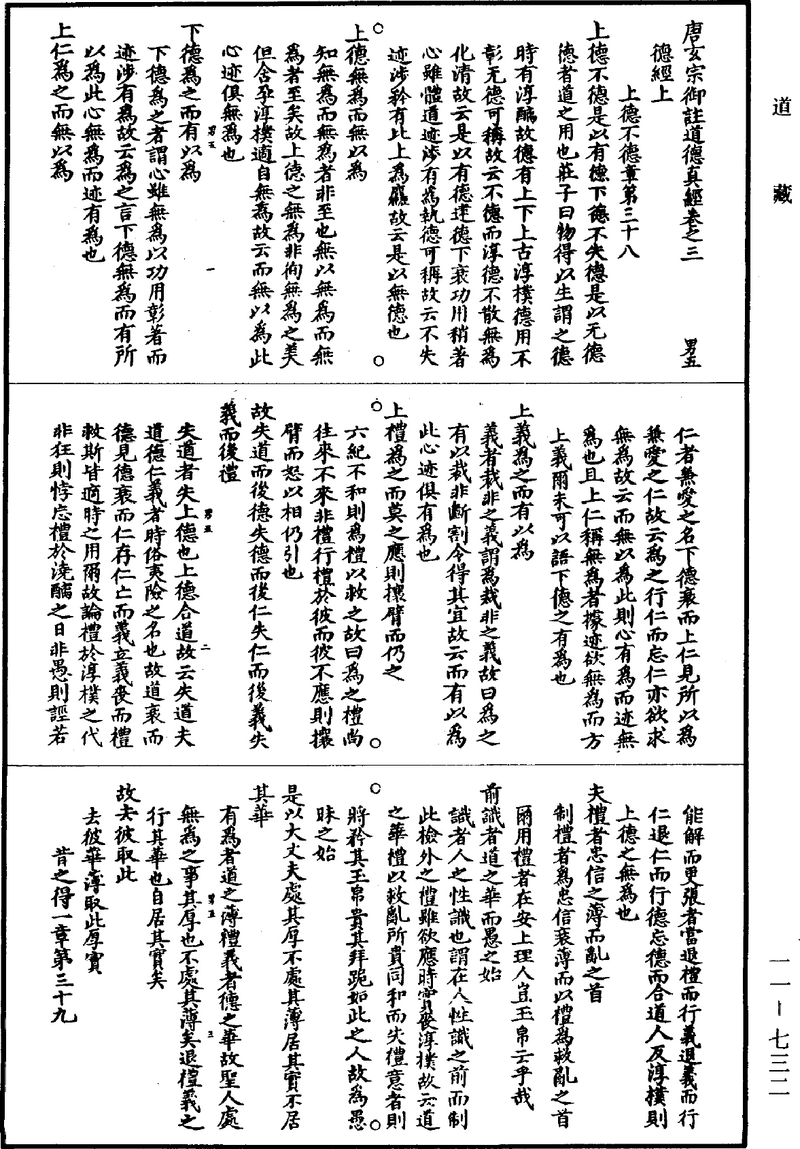 道藏
唐玄宗御註道德真經卷之三 男五
德經上
上德不德章第三十八
上德不德是以有德下德不失德是以无德
德者道之用也莊子曰物得以生謂之德
時有淳醨故德有上下上古淳樸德用不
彰无德可稱故云不德而淳德不散無為
化清故云是以有德逮德下衰功用稍著
心雖體道迹涉有為執德可稱故云不失
迹涉矜有比上為麤故云是以無德也
上德無為而無以為
知無為而無為者非至也無以無為而無
為者至矣故上德之無為非徇無為之美
但含孕淳樸適自無為故云而無以為此
心迹俱無為也
下德為之而有以為
下德為之者謂心雖無為以功用彰著而
迹涉有為故云為之言下德無為而有所
以為此心無為而迹有為也
上仁為之而無以為
男五 一
仁者兼愛之名下德衰而上仁見所以為
兼愛之仁故云為之行仁而忘仁亦欲求
無為故云而無以為此則心有為而迹無
為也且上仁稱無為者據迹欲無為而方
上義爾未可以語下德之有為也
上義為之而有以為
義者裁非之義謂為裁非之義故曰為之
有以裁非斷割令得其宜故云而有以為
此心迹俱有為也
上禮為之而莫之應則攘臂而仍之
六紀不和則為禮以救之故曰為之禮尚
往來不來非禮行禮於彼而彼不應則攘
臂而怒以相仍引也
故失道而後德失德而後仁失仁而後義失
義而後禮
失道者失上德也上德合道故云失道夫
道德仁義者時俗夷險之名也故道衰而
德見德衰而仁存仁亡而義立義喪而禮
救斯皆適時之用爾故論禮於淳樸之代
非狂則悖忘禮於澆醨之日非愚則誣若
男五 二
能解而更張者當退禮而行義退義而行
仁退仁而行德忘德而合道人反淳樸則
上德之無為也
夫禮者忠信之薄而亂之首
制禮者為忠信衰薄而以禮為救亂之首
爾用禮者在安上理人豈玉帛云乎哉
前識者道之華而愚之始
識者人之性識也謂在人性識之前而制
此檢外之禮雖欲應時實喪淳樸故云道
之華禮以救亂所貴同和而失禮意者則
將矜其玉帛貴其拜跪如此之人故為愚
昧之始
是以大丈夫處其厚不處其薄居其實不居
其華
有為者道之薄禮義者德之華故聖人處
無為之事其厚也不處其薄矣退禮義之
行其華也自居其實矣
故去彼取此
去彼華薄取此厚實
昔之得一章第三十九
男五 三
一一－七三二